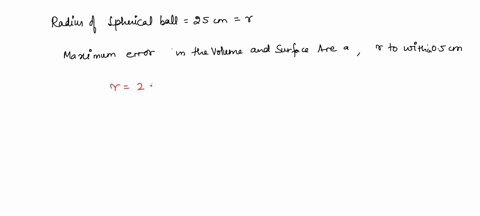 Radius of Spherical ball = 25 cm = r
Maximum error in the Volume and Surface Are a, r to within 0.5 cm
r = 2